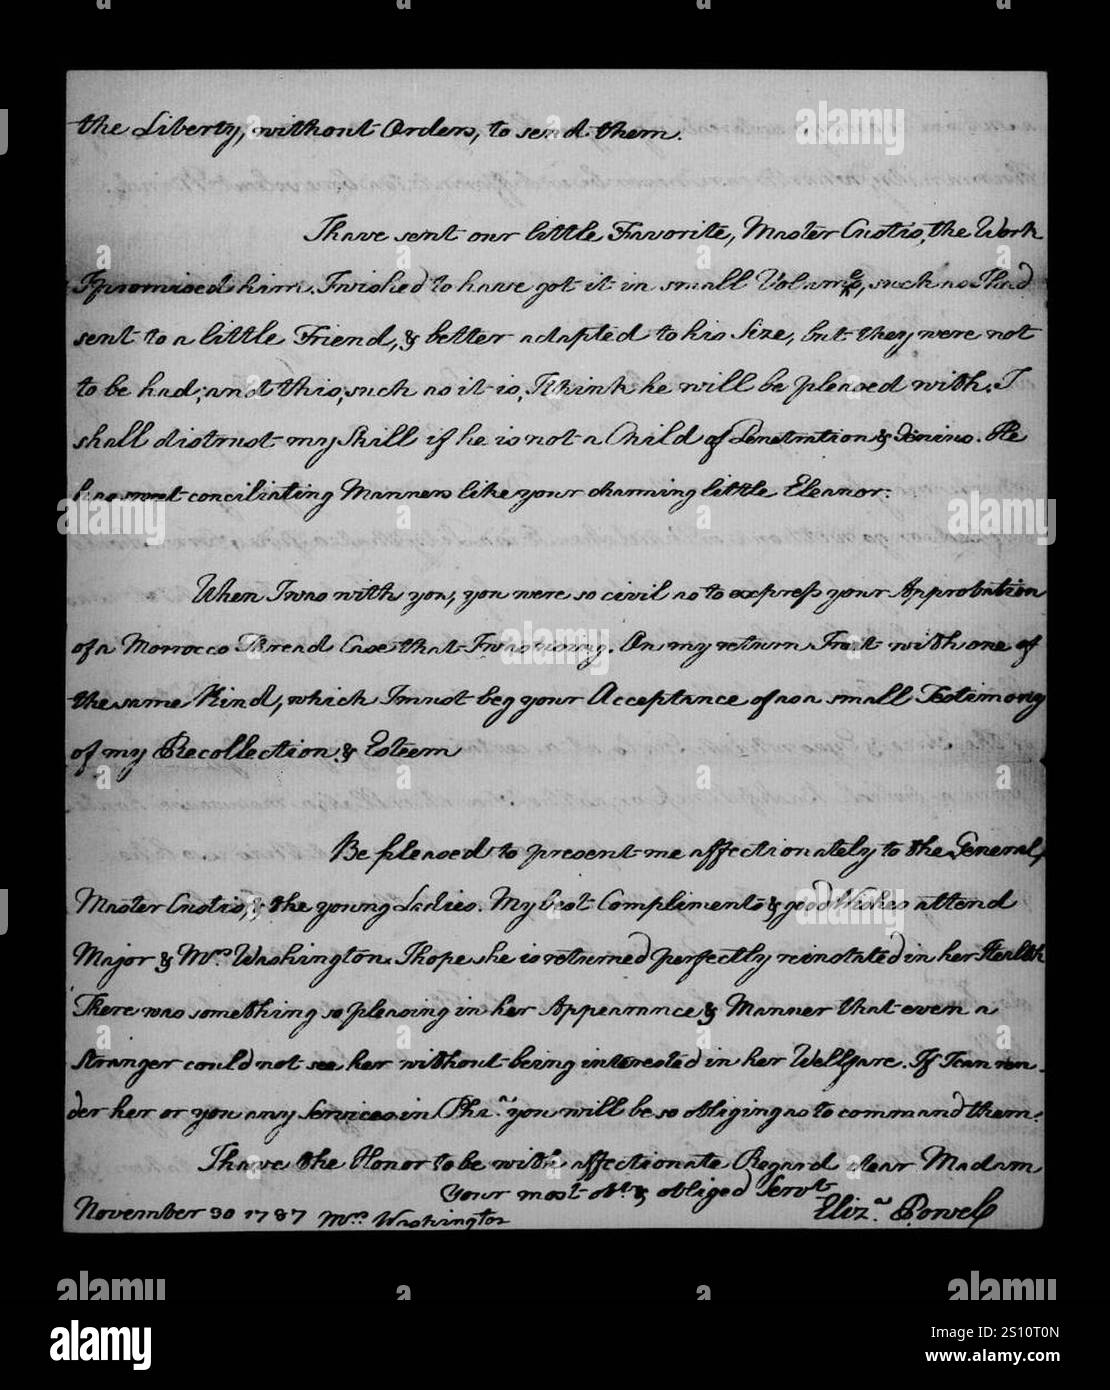 the Liberty, without Orders, to send them.
I have sent our little Favorite, Master Custis, the Work
I promised him. I wished to have got it in small Volumes, such as I had
sent to a little Friend, & better adapted to his Size, but they were not
to be had; and this, such as it is, I think he will be pleased with. I
shall distrust my Skill if he is not a Child of Penetration & Genius. He
has most conciliating Manners like your charming little Eleanor.
When I was with you, you were so civil as to express your Approbation
of a Morrocco Thread Case that I was using. On my return I met with one of
the same Kind, which I must beg your Acceptance of as a small Testimony
of my Recollection & Esteem
Be pleased to present me affectionately to the General,
Master Custis, & the young Ladies. My best Compliments & good Wishes attend
Major & Mrs Washington. I hope she is returned perfectly reinstated in her Health
There was something so pleasing in her Appearance & Manner that even a
Stranger could not see her without being interested in her Wellfare. If I can ren-
der her or you any Services in Phia. you will be so obliging as to command them.
I have the Honor to be with affectionate Regard dear Madam
Your most obt & obliged Servt
November 30 1787 Mrs Washington Eliza. Powel
alamy
www.alamy.com
Image ID: 2S10T0N